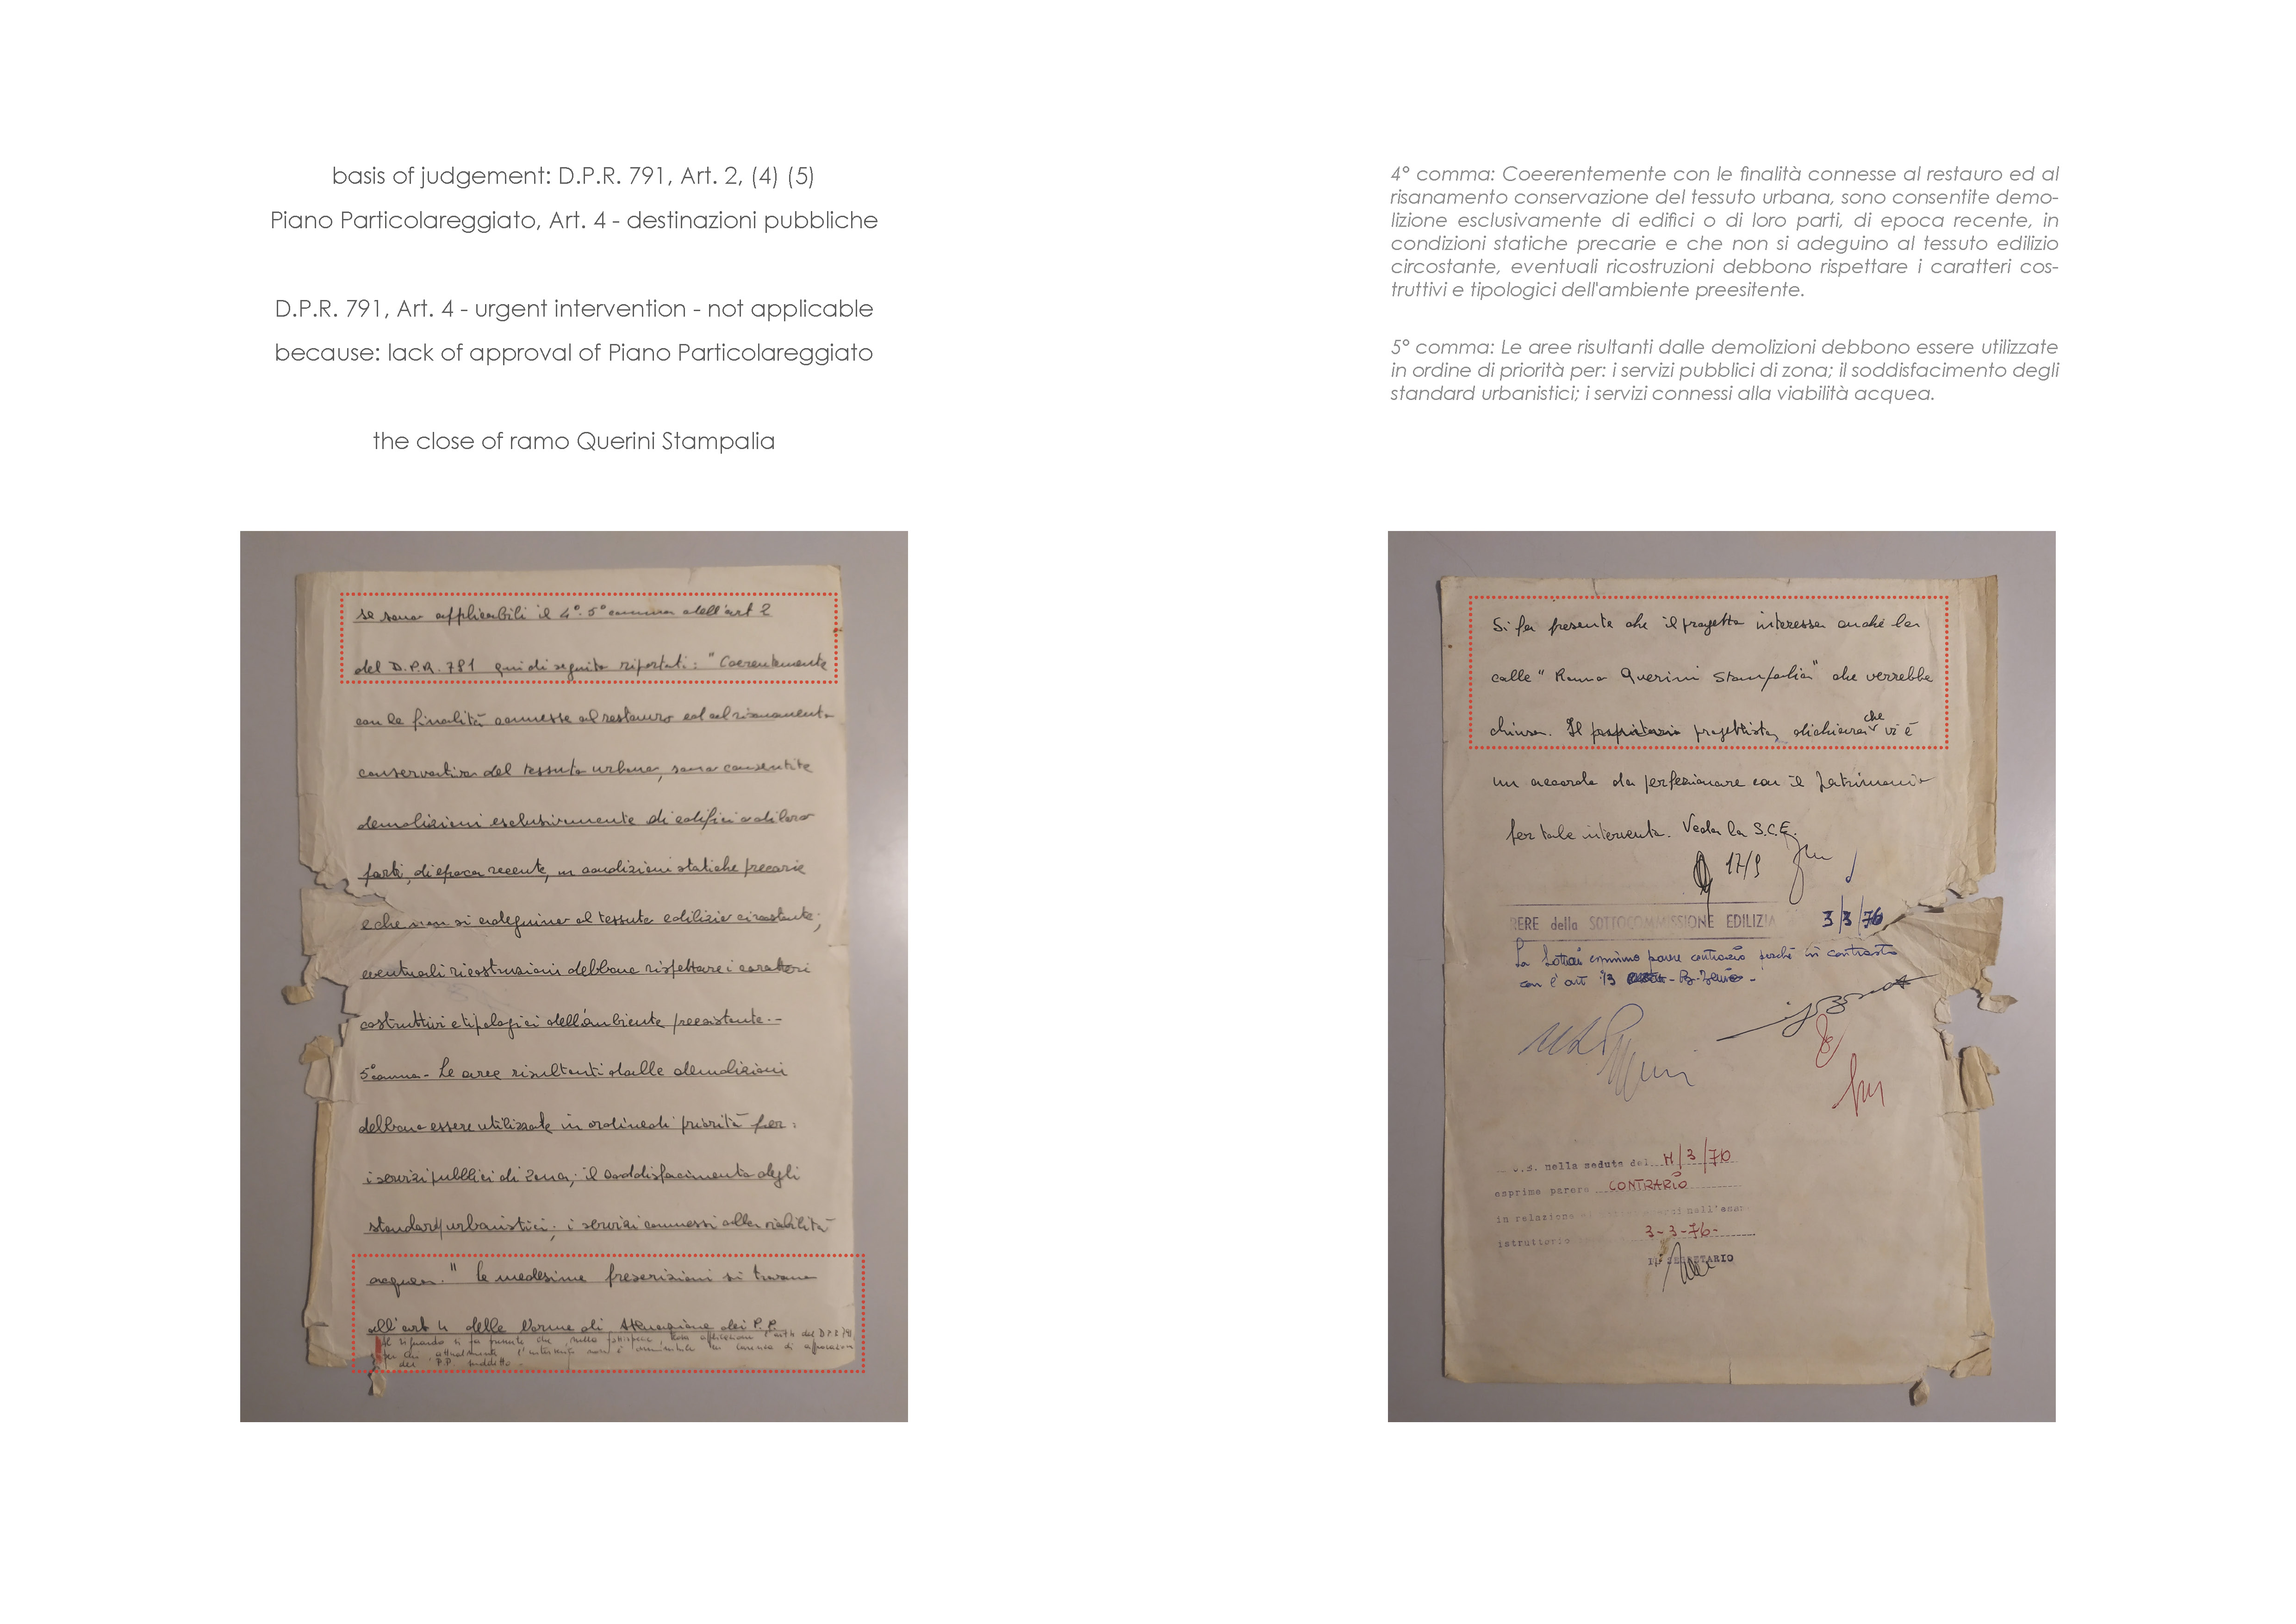 basis of judgement: D.P.R. 791, Art. 2, (4) (5)
Piano Particolareggiato, Art. 4 - destinazioni pubbliche
D.P.R. 791, Art. 4 - urgent intervention - not applicable
because: lack of approval of Piano Particolareggiato
the close of ramo Querini Stampalia
se sono applicabili il 4° 5° comma dell'art 2
del D.P.R. 791 qui di seguito riportati: "Coerentemente
con le finalità connesse al restauro ed al risanamento
conservativo del tessuto urbano, sono consentite
demolizioni esclusivamente di edifici o di loro
parti, di epoca recente, in condizioni statiche precarie
e che non si adeguino al tessuto edilizio circostante;
eventuali ricostruzioni debbono rispettare i caratteri
costruttivi e tipologici dell'ambiente preesistente.-
5° comma - Le aree risultanti dalle demolizioni
debbono essere utilizzate in ordine di priorità per:
i servizi pubblici di zona; il soddisfacimento degli
standard urbanistici; i servizi connessi alla viabilità
acquea." Le medesime prescrizioni si trovano
all'art 4 delle Norme di Attuazione dei P.P.
si fa presente che l'art 4 del D.P.R. 791
attualmente l' non è in carenza di approvazione
dei P.P. suddetto
4° comma: Coeerentemente con le finalità connesse al restauro ed al
risanamento conservazione del tessuto urbana, sono consentite demo-
lizione esclusivamente di edifici o di loro parti, di epoca recente, in
condizioni statiche precarie e che non si adeguino al tessuto edilizio
circostante, eventuali ricostruzioni debbono rispettare i caratteri cos-
truttivi e tipologici dell'ambiente preesitente.
5° comma: Le aree risultanti dalle demolizioni debbono essere utilizzate
in ordine di priorità per: i servizi pubblici di zona; il soddisfacimento degli
standard urbanistici; i servizi connessi alla viabilità acquea.
Si fa presente che il progetto interessa anche la
calle "Ramo Querini Stampalia" che verrebbe
chiusa. Il progettista dichiara che vi è
un accordo da perfezionare con il Patrimonio
per tale intervento. Veda la S.C.E.
17/9
RERE della SOTTOCOMMISSIONE EDILIZIA 3/3/76
La parere contrario perché in contrasto
con l'art 13
nella seduta del /3/76
esprime parere CONTRARIO
in relazione
istruttorio 3-3-76-
IL SEGRETARIO